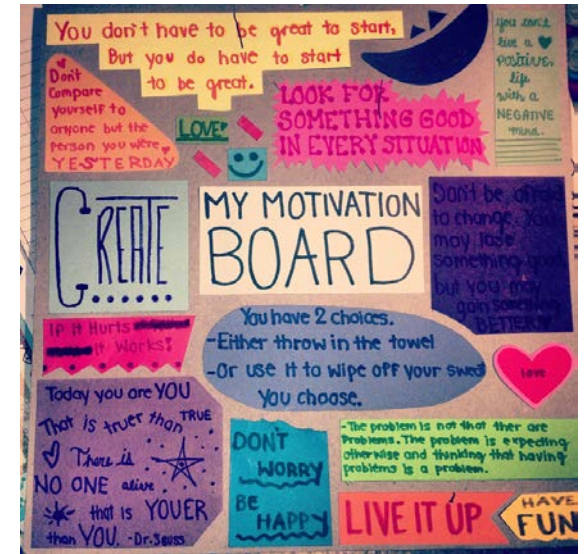 You don't have to be great to start,
But you do have to start
to be great.
Don't
Compare
yourself to
anyone but the
person you were
YESTERDAY
LOVE
LOOK FOR
SOMETHING GOOD
IN EVERY SITUATION
you can't
live a
positive
life
with a
NEGATIVE
mind.
CREATE
MY MOTIVATION
BOARD
Don't be afraid
to change. You
may lose
something good
but you may
gain something
BETTER
If It Hurts
It Works!
You have 2 choices.
-Either throw in the towel
-Or use it to wipe off your sweat
You choose.
love
Today you are YOU
That is truer than TRUE
There is
NO ONE alive
that is YOUER
than YOU. -Dr. Seuss
DON'T
WORRY
BE
HAPPY
-The problem is not that ther are
Problems. The problem is expecting
otherwise and thinking that having
problems is a problem.
LIVE IT UP
HAVE
FUN